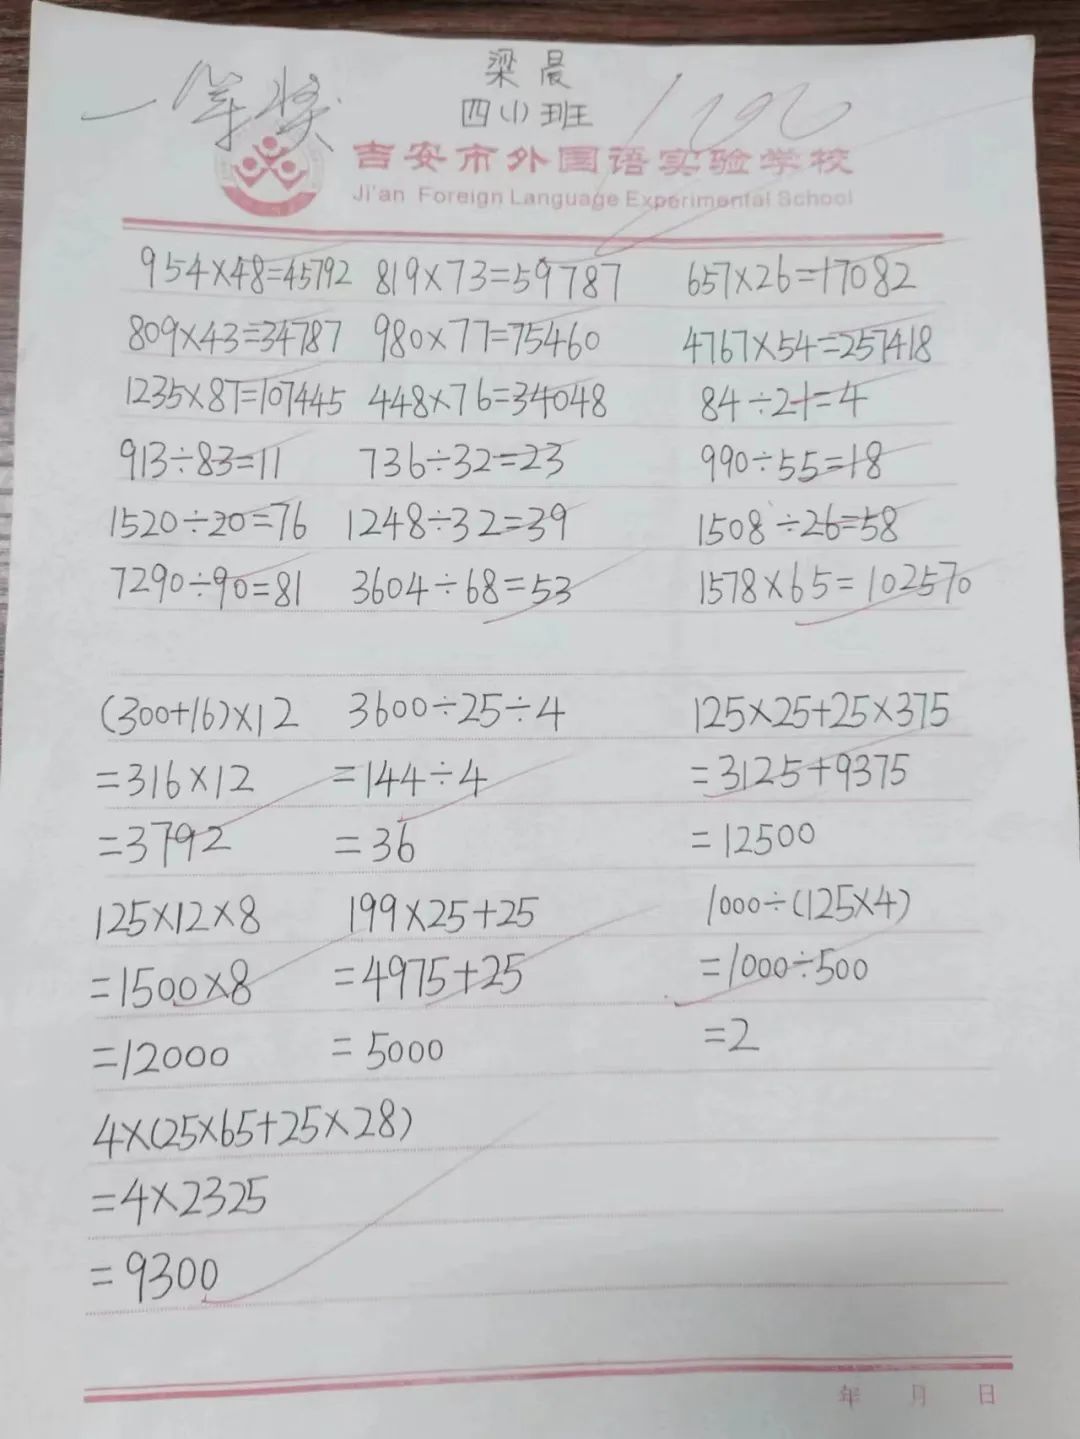 梁晨
一等奖 四(1)班 100
吉安市外国语实验学校
Ji'an Foreign Language Experimental School
954×48=45792 819×73=59787 657×26=17082
809×43=34787 980×77=75460 4767×54=257418
1235×87=107445 448×76=34048 84÷21=4
913÷83=11 736÷32=23 990÷55=18
1520÷20=76 1248÷32=39 1508÷26=58
7290÷90=81 3604÷68=53 1578×65=102570
(300+16)×12 3600÷25÷4 125×25+25×375
=316×12 =144÷4 =3125+9375
=3792 =36 =12500
125×12×8 199×25+25 1000÷(125×4)
=1500×8 =4975+25 =1000÷500
=12000 =5000 =2
4×(25×65+25×28)
=4×2325
=9300
年 月 日